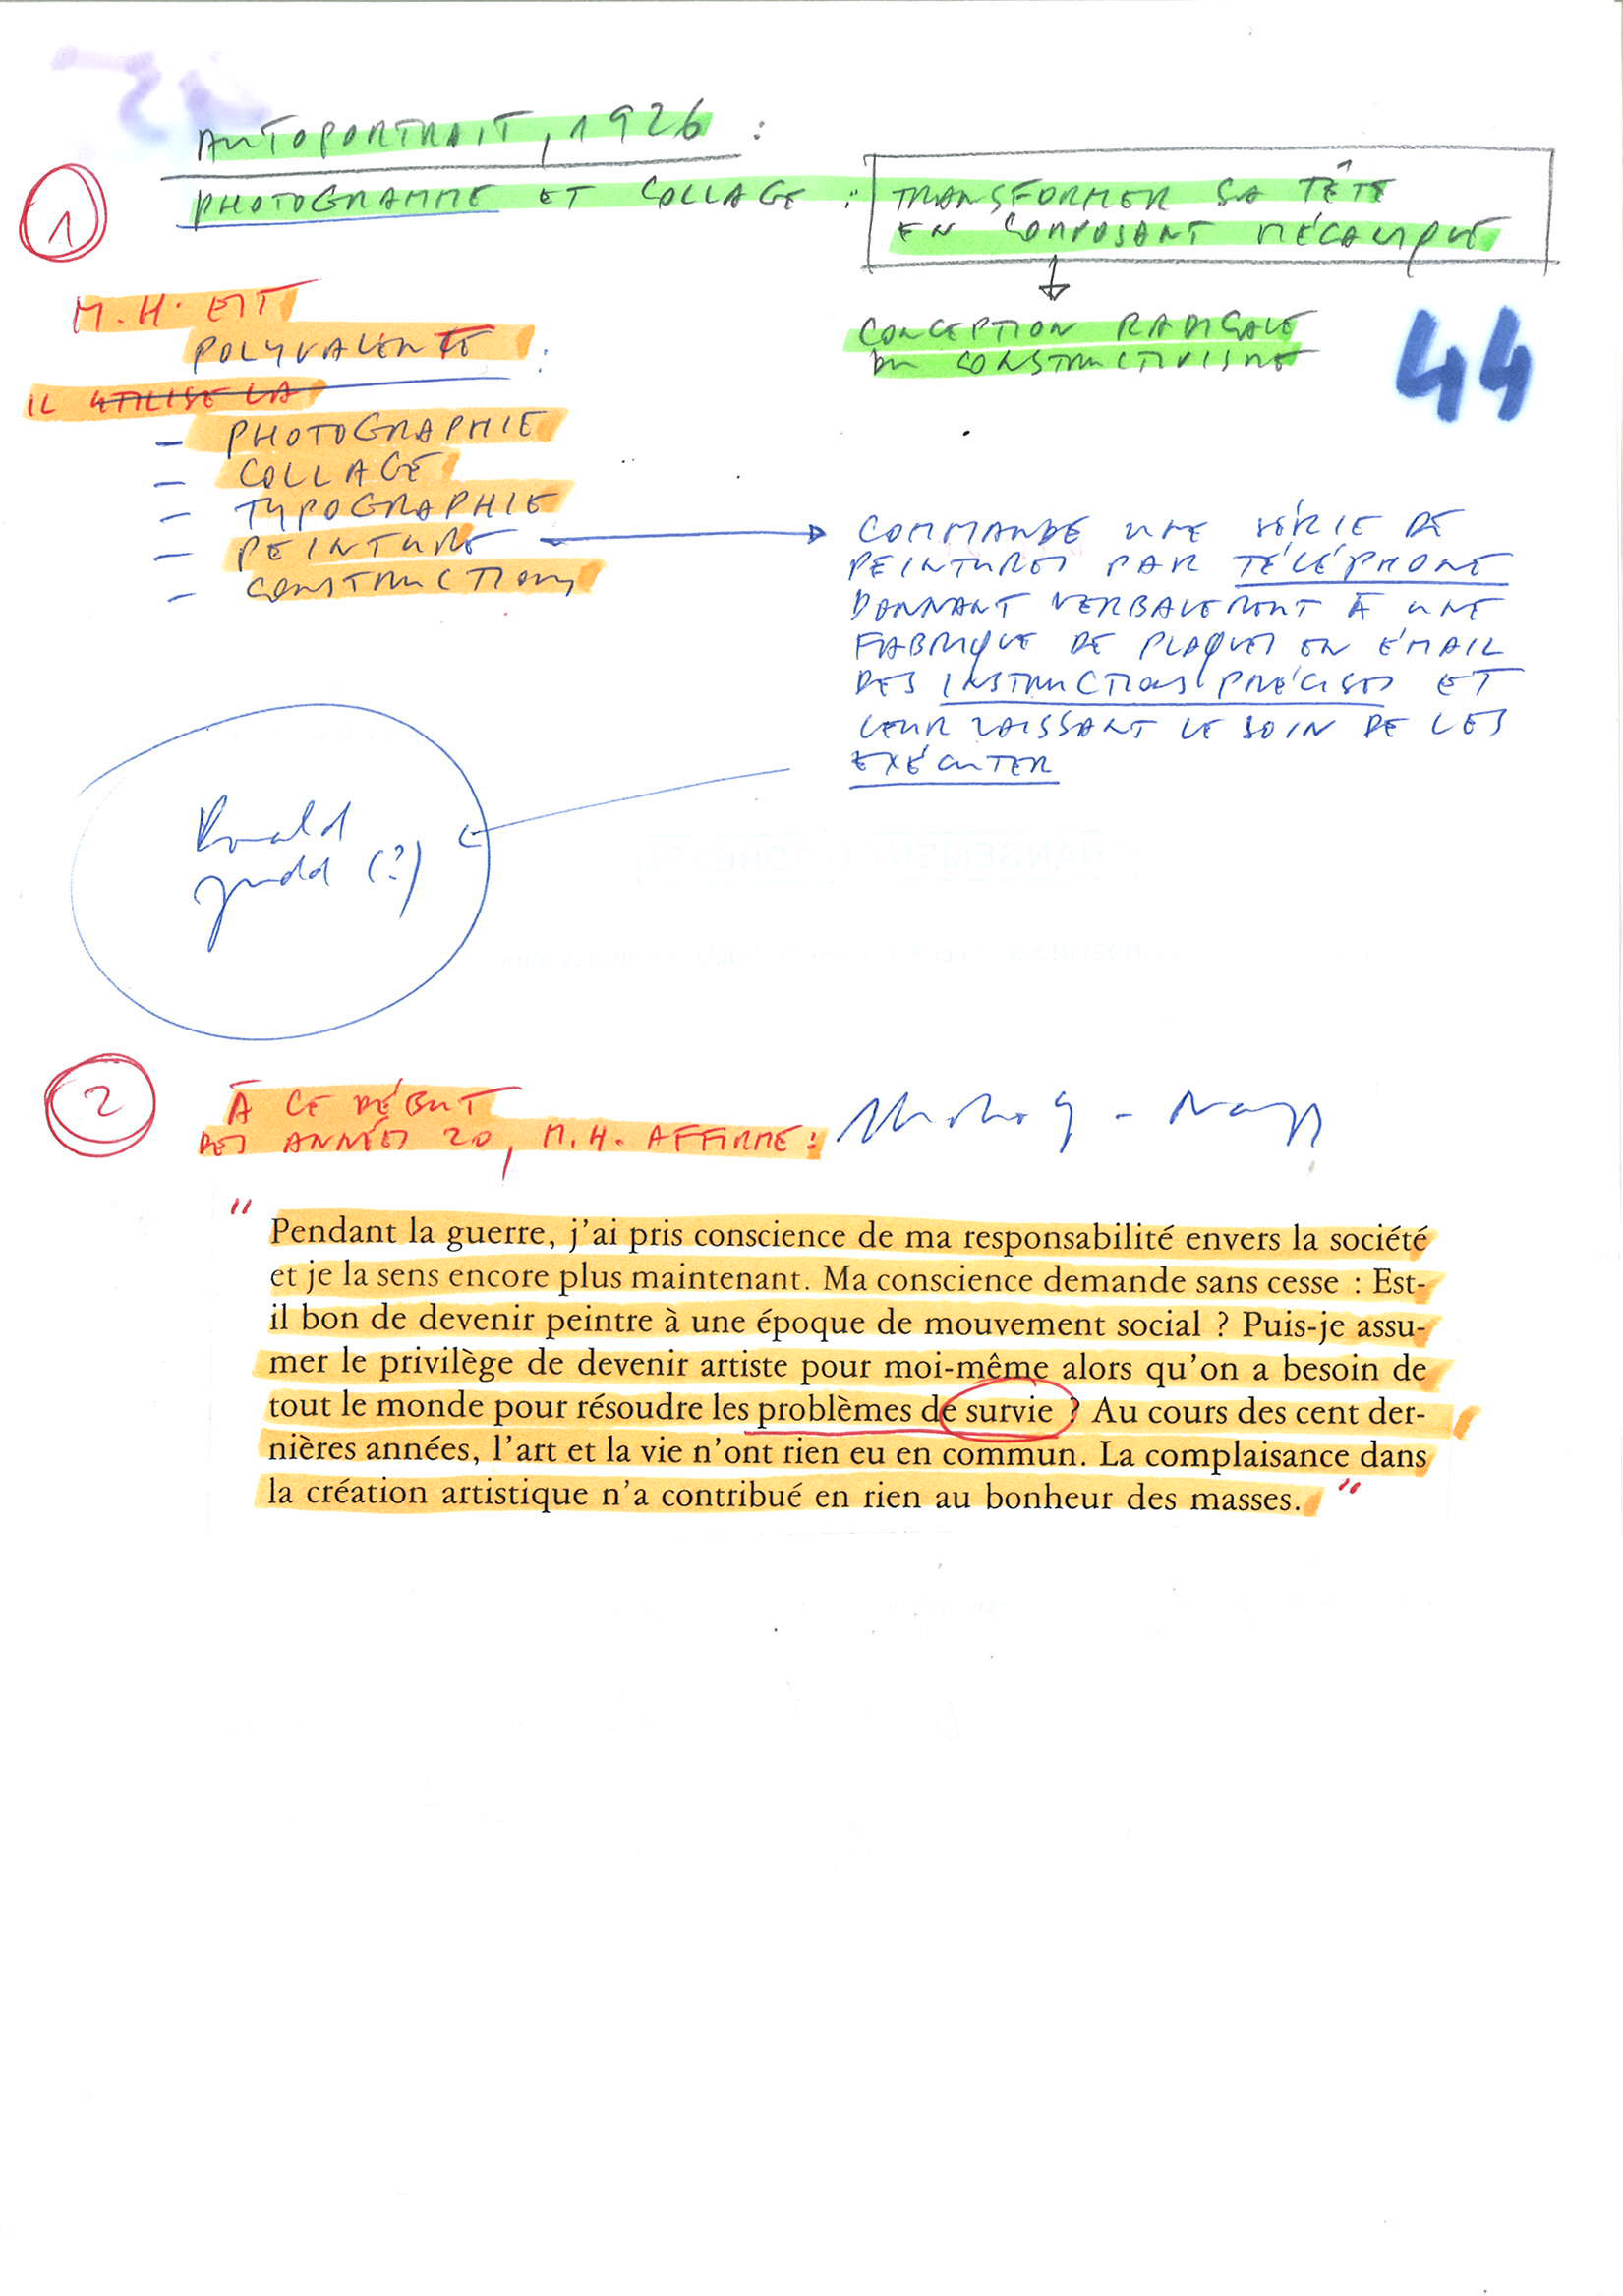 AUTOPORTRAIT, 1926 :
1
PHOTOGRAMME ET COLLAGE :
TRANSFORMER SA TÊTE
EN COMPOSANT MÉCANIQUE
CONCEPTION RADICALE
DU CONSTRUCTIVISME
44
M. H. EST
POLYVALENTE :
IL UTILISE LA
– PHOTOGRAPHIE
– COLLAGE
– TYPOGRAPHIE
– PEINTURE
– CONSTRUCTIONS
COMMANDE UNE SÉRIE DE
PEINTURES PAR TÉLÉPHONE
DONNANT VERBALEMENT À UNE
FABRIQUE DE PLAQUES EN ÉMAIL
DES INSTRUCTIONS PRÉCISES ET
LEUR LAISSANT LE SOIN DE LES
EXÉCUTER
Donald
Judd (?)
2
À CE DÉBUT
DES ANNÉES 20, M. H. AFFIRME :
Moholy - Nagy
" Pendant la guerre, j'ai pris conscience de ma responsabilité envers la société
et je la sens encore plus maintenant. Ma conscience demande sans cesse : Est-
il bon de devenir peintre à une époque de mouvement social ? Puis-je assu-
mer le privilège de devenir artiste pour moi-même alors qu'on a besoin de
tout le monde pour résoudre les problèmes de survie ? Au cours des cent der-
nières années, l'art et la vie n'ont rien eu en commun. La complaisance dans
la création artistique n'a contribué en rien au bonheur des masses. "